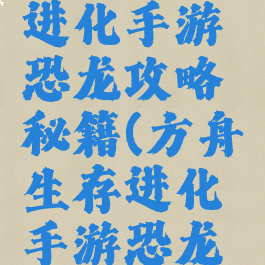 进化手游
恐龙攻略
秘籍(方舟
生存进化
手游恐龙